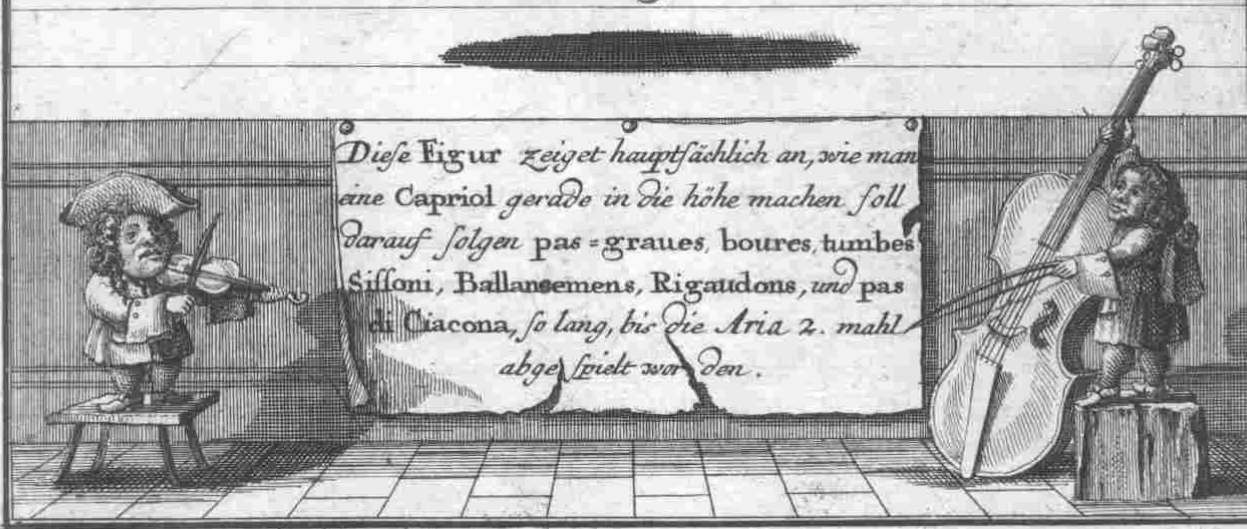 Dieſe Figur zeiget hauptſächlich an, wie man
eine Capriol gerade in die höhe machen ſoll
darauf folgen pas=graues, boures, tumbes
Siſſoni, Ballansemens, Rigaudons, und pas
di Ciacona, ſo lang, bis die Aria 2. mahl
abgeſpielt worden.